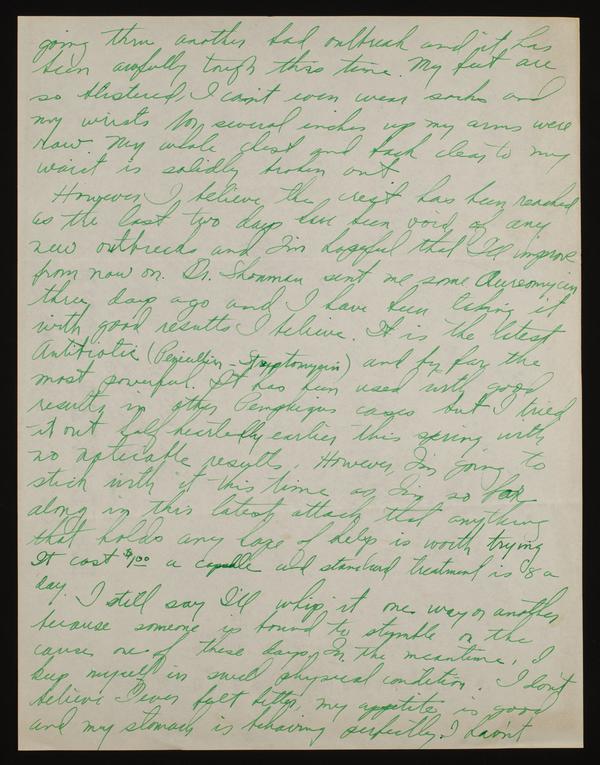 going thru another bad outbreak and it has
been awfully tough this time. My feet are
so blistered, I can't even wear socks and
my wirsts for several inches up my arms were
raw. My whole chest and back clear to my
waist is solidly broken out
However I believe the crest has been reached
as the last two days have been void of any
new outbreaks and I'm hopeful that I'll improve
from now on. Dr. Shonman sent me some Aureomycin
three days ago and I have been taking it
with good results I believe. It is the latest
Antibiotic (Penicillin - Streptomycin) and by far the
most powerful. It has been used with good
results in other Pemphigus cases but I tried
it out half heartedly earlier this spring with
no noticable results. However, I'm going to
stick with it this time as I'm so far
along in this latest attack that anything
that holds any hope of help is worth trying
It cost $1.00 a capsule and standard treatment is 8 a
day. I still say I'll whip it one way or another
because someone is bound to stumble on the
cause one of these days. In the meantime, I
keep myself in swell physical condition. I don't
believe I ever felt better, my appetite is good
and my stomach is behaving perfectly. I havn't